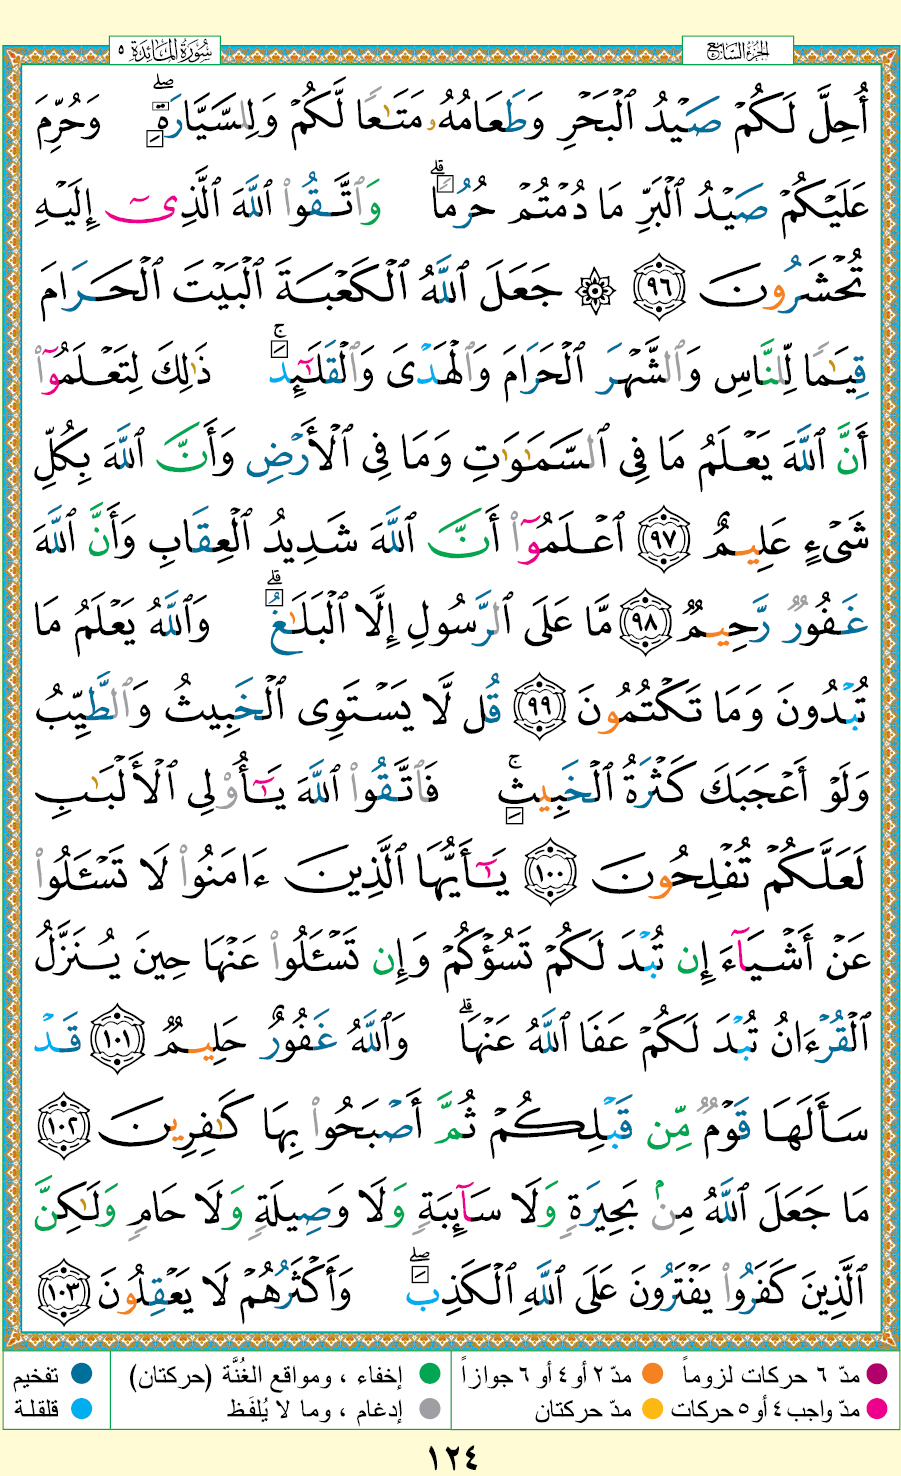 سُورَةُ المَائِدَة ٥
الجزء السابع
أُحِلَّ لَكُمْ صَيْدُ ٱلْبَحْرِ وَطَعَامُهُۥ مَتَـٰعًا لَّكُمْ وَلِلسَّيَّارَةِ ۖ وَحُرِّمَ
عَلَيْكُمْ صَيْدُ ٱلْبَرِّ مَا دُمْتُمْ حُرُمًا ۗ وَٱتَّقُوا۟ ٱللَّهَ ٱلَّذِىٓ إِلَيْهِ
تُحْشَرُونَ ٩٦ ۞ جَعَلَ ٱللَّهُ ٱلْكَعْبَةَ ٱلْبَيْتَ ٱلْحَرَامَ
قِيَـٰمًا لِّلنَّاسِ وَٱلشَّهْرَ ٱلْحَرَامَ وَٱلْهَدْىَ وَٱلْقَلَـٰٓئِدَ ۚ ذَٰلِكَ لِتَعْلَمُوٓا۟
أَنَّ ٱللَّهَ يَعْلَمُ مَا فِى ٱلسَّمَـٰوَٰتِ وَمَا فِى ٱلْأَرْضِ وَأَنَّ ٱللَّهَ بِكُلِّ
شَىْءٍ عَلِيمٌ ٩٧ ٱعْلَمُوٓا۟ أَنَّ ٱللَّهَ شَدِيدُ ٱلْعِقَابِ وَأَنَّ ٱللَّهَ
غَفُورٌ رَّحِيمٌ ٩٨ مَّا عَلَى ٱلرَّسُولِ إِلَّا ٱلْبَلَـٰغُ ۗ وَٱللَّهُ يَعْلَمُ مَا
تُبْدُونَ وَمَا تَكْتُمُونَ ٩٩ قُل لَّا يَسْتَوِى ٱلْخَبِيثُ وَٱلطَّيِّبُ
وَلَوْ أَعْجَبَكَ كَثْرَةُ ٱلْخَبِيثِ ۚ فَٱتَّقُوا۟ ٱللَّهَ يَـٰٓأُو۟لِى ٱلْأَلْبَـٰبِ
لَعَلَّكُمْ تُفْلِحُونَ ١٠٠ يَـٰٓأَيُّهَا ٱلَّذِينَ ءَامَنُوا۟ لَا تَسْـَٔلُوا۟
عَنْ أَشْيَآءَ إِن تُبْدَ لَكُمْ تَسُؤْكُمْ وَإِن تَسْـَٔلُوا۟ عَنْهَا حِينَ يُنَزَّلُ
ٱلْقُرْءَانُ تُبْدَ لَكُمْ عَفَا ٱللَّهُ عَنْهَا ۗ وَٱللَّهُ غَفُورٌ حَلِيمٌ ١٠١ قَدْ
سَأَلَهَا قَوْمٌ مِّن قَبْلِكُمْ ثُمَّ أَصْبَحُوا۟ بِهَا كَـٰفِرِينَ ١٠٢
مَا جَعَلَ ٱللَّهُ مِنۢ بَحِيرَةٍ وَلَا سَآئِبَةٍ وَلَا وَصِيلَةٍ وَلَا حَامٍ وَلَـٰكِنَّ
ٱلَّذِينَ كَفَرُوا۟ يَفْتَرُونَ عَلَى ٱللَّهِ ٱلْكَذِبَ ۖ وَأَكْثَرُهُمْ لَا يَعْقِلُونَ ١٠٣
مدّ ٦ حركات لزوماً مدّ ٢ أو ٤ أو ٦ جوازاً إخفاء ، ومواقع الغُنَّة (حركتان) تفخيم
مدّ واجب ٤ أو ٥ حركات مدّ حركتان إدغام ، وما لا يُلفَظ قلقلة
١٢٤